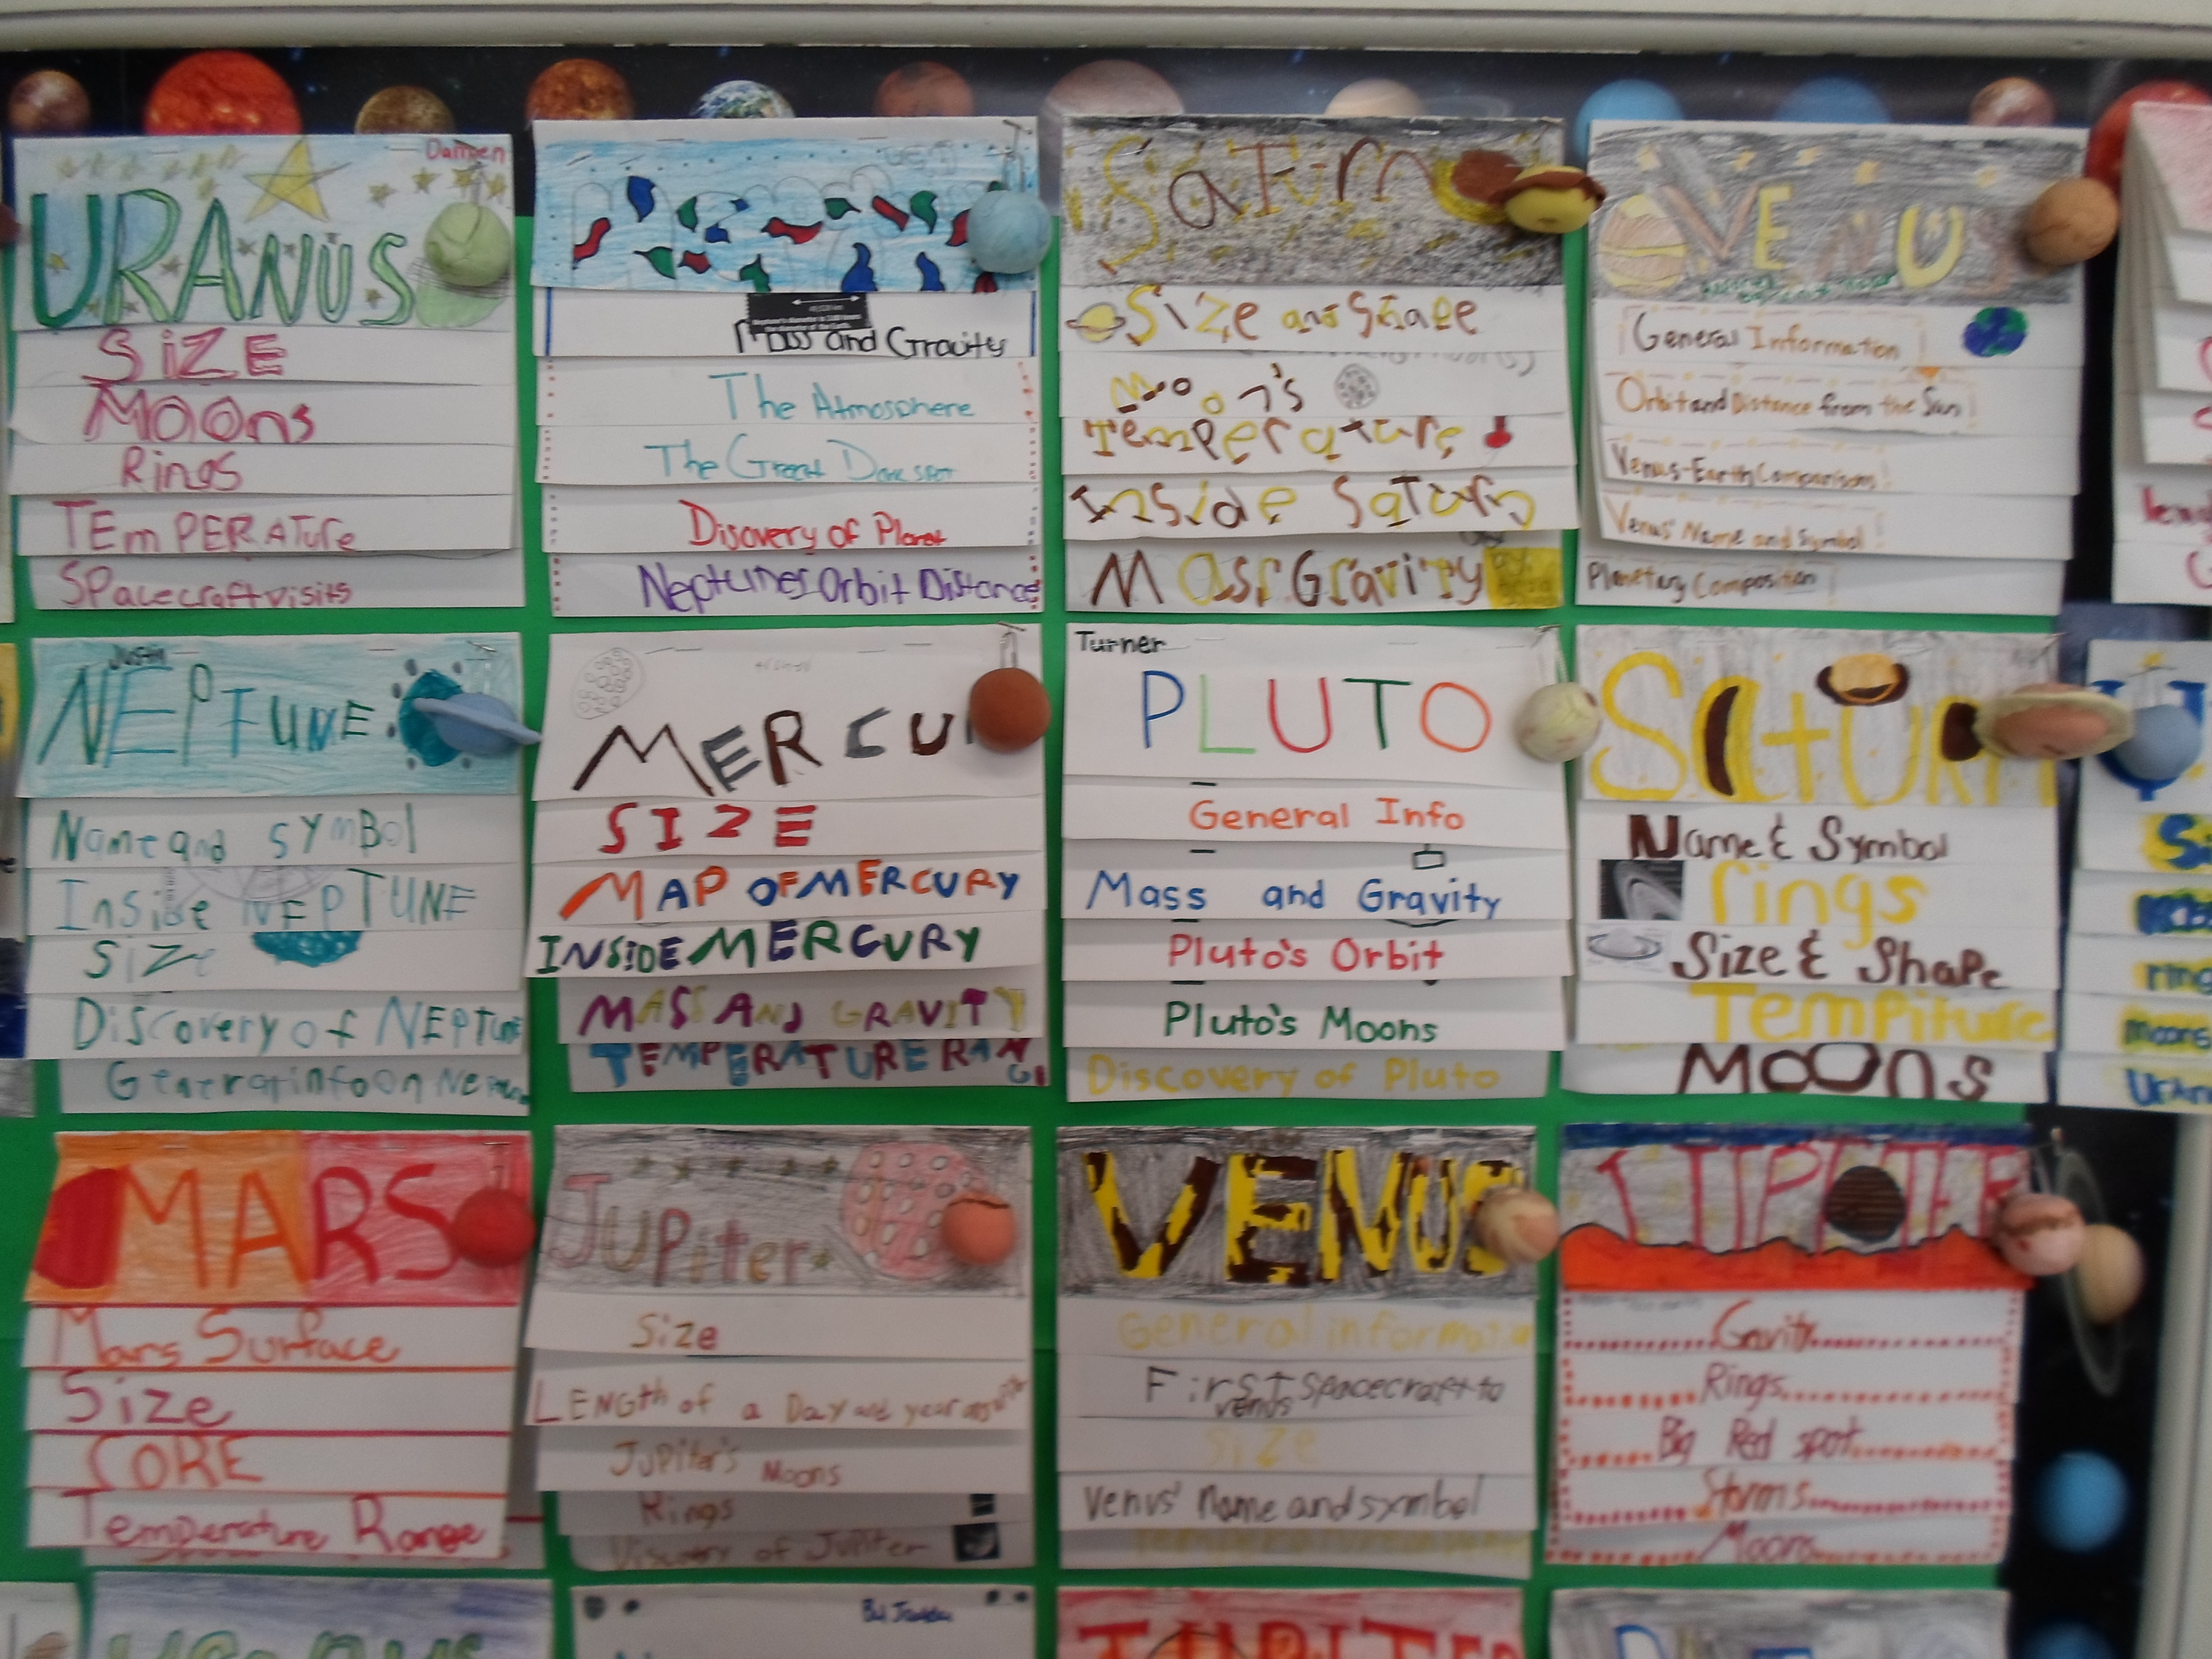 Damien
URANUS
SiZE
Moons
Rings
TEmPERATure
SPacecraftvisits
Mass and Gravity
The Atmosphere
The Great Dark spot
Disovery of Planet
Neptunes Orbit Distance
Saturn
Size and Shape
Moon's
Temperature
Inside Saturn
Mass Gravity
VENUS
General Information
Orbit and Distance from the Sun!
Venus-Earth Comparisons!
Venus' Name and Symbol!
Planetary Composition!
Justin
NEPTUNE
Name and symBol
Inside NEPTUNE
Size
Discovery of NEPTUNE
General info on Neptune
MERCU
SIZE
MAP OF MERCURY
INSiDE MERCURY
MASS AND GRAVITY
TEMPERATURE RANG
Turner
PLUTO
General Info
Mass and Gravity
Pluto's Orbit
Pluto's Moons
Discovery of Pluto
Saturn
Name & Symbol
rings
Size & Shape
Tempiture
MOONS
ring
moons
MARS
Mars Surface
Size
CORE
Temperature Range
JUPiter
Size
LENGth of a Day and year
JUPiter's Moons
Rings
of Jupiter
VENUS
General information
First spacecraft to
venus
Size
Venus' Name and symbol
Gravity
Rings
Big Red spot
Storms
Moons
URANUS
JUPITER